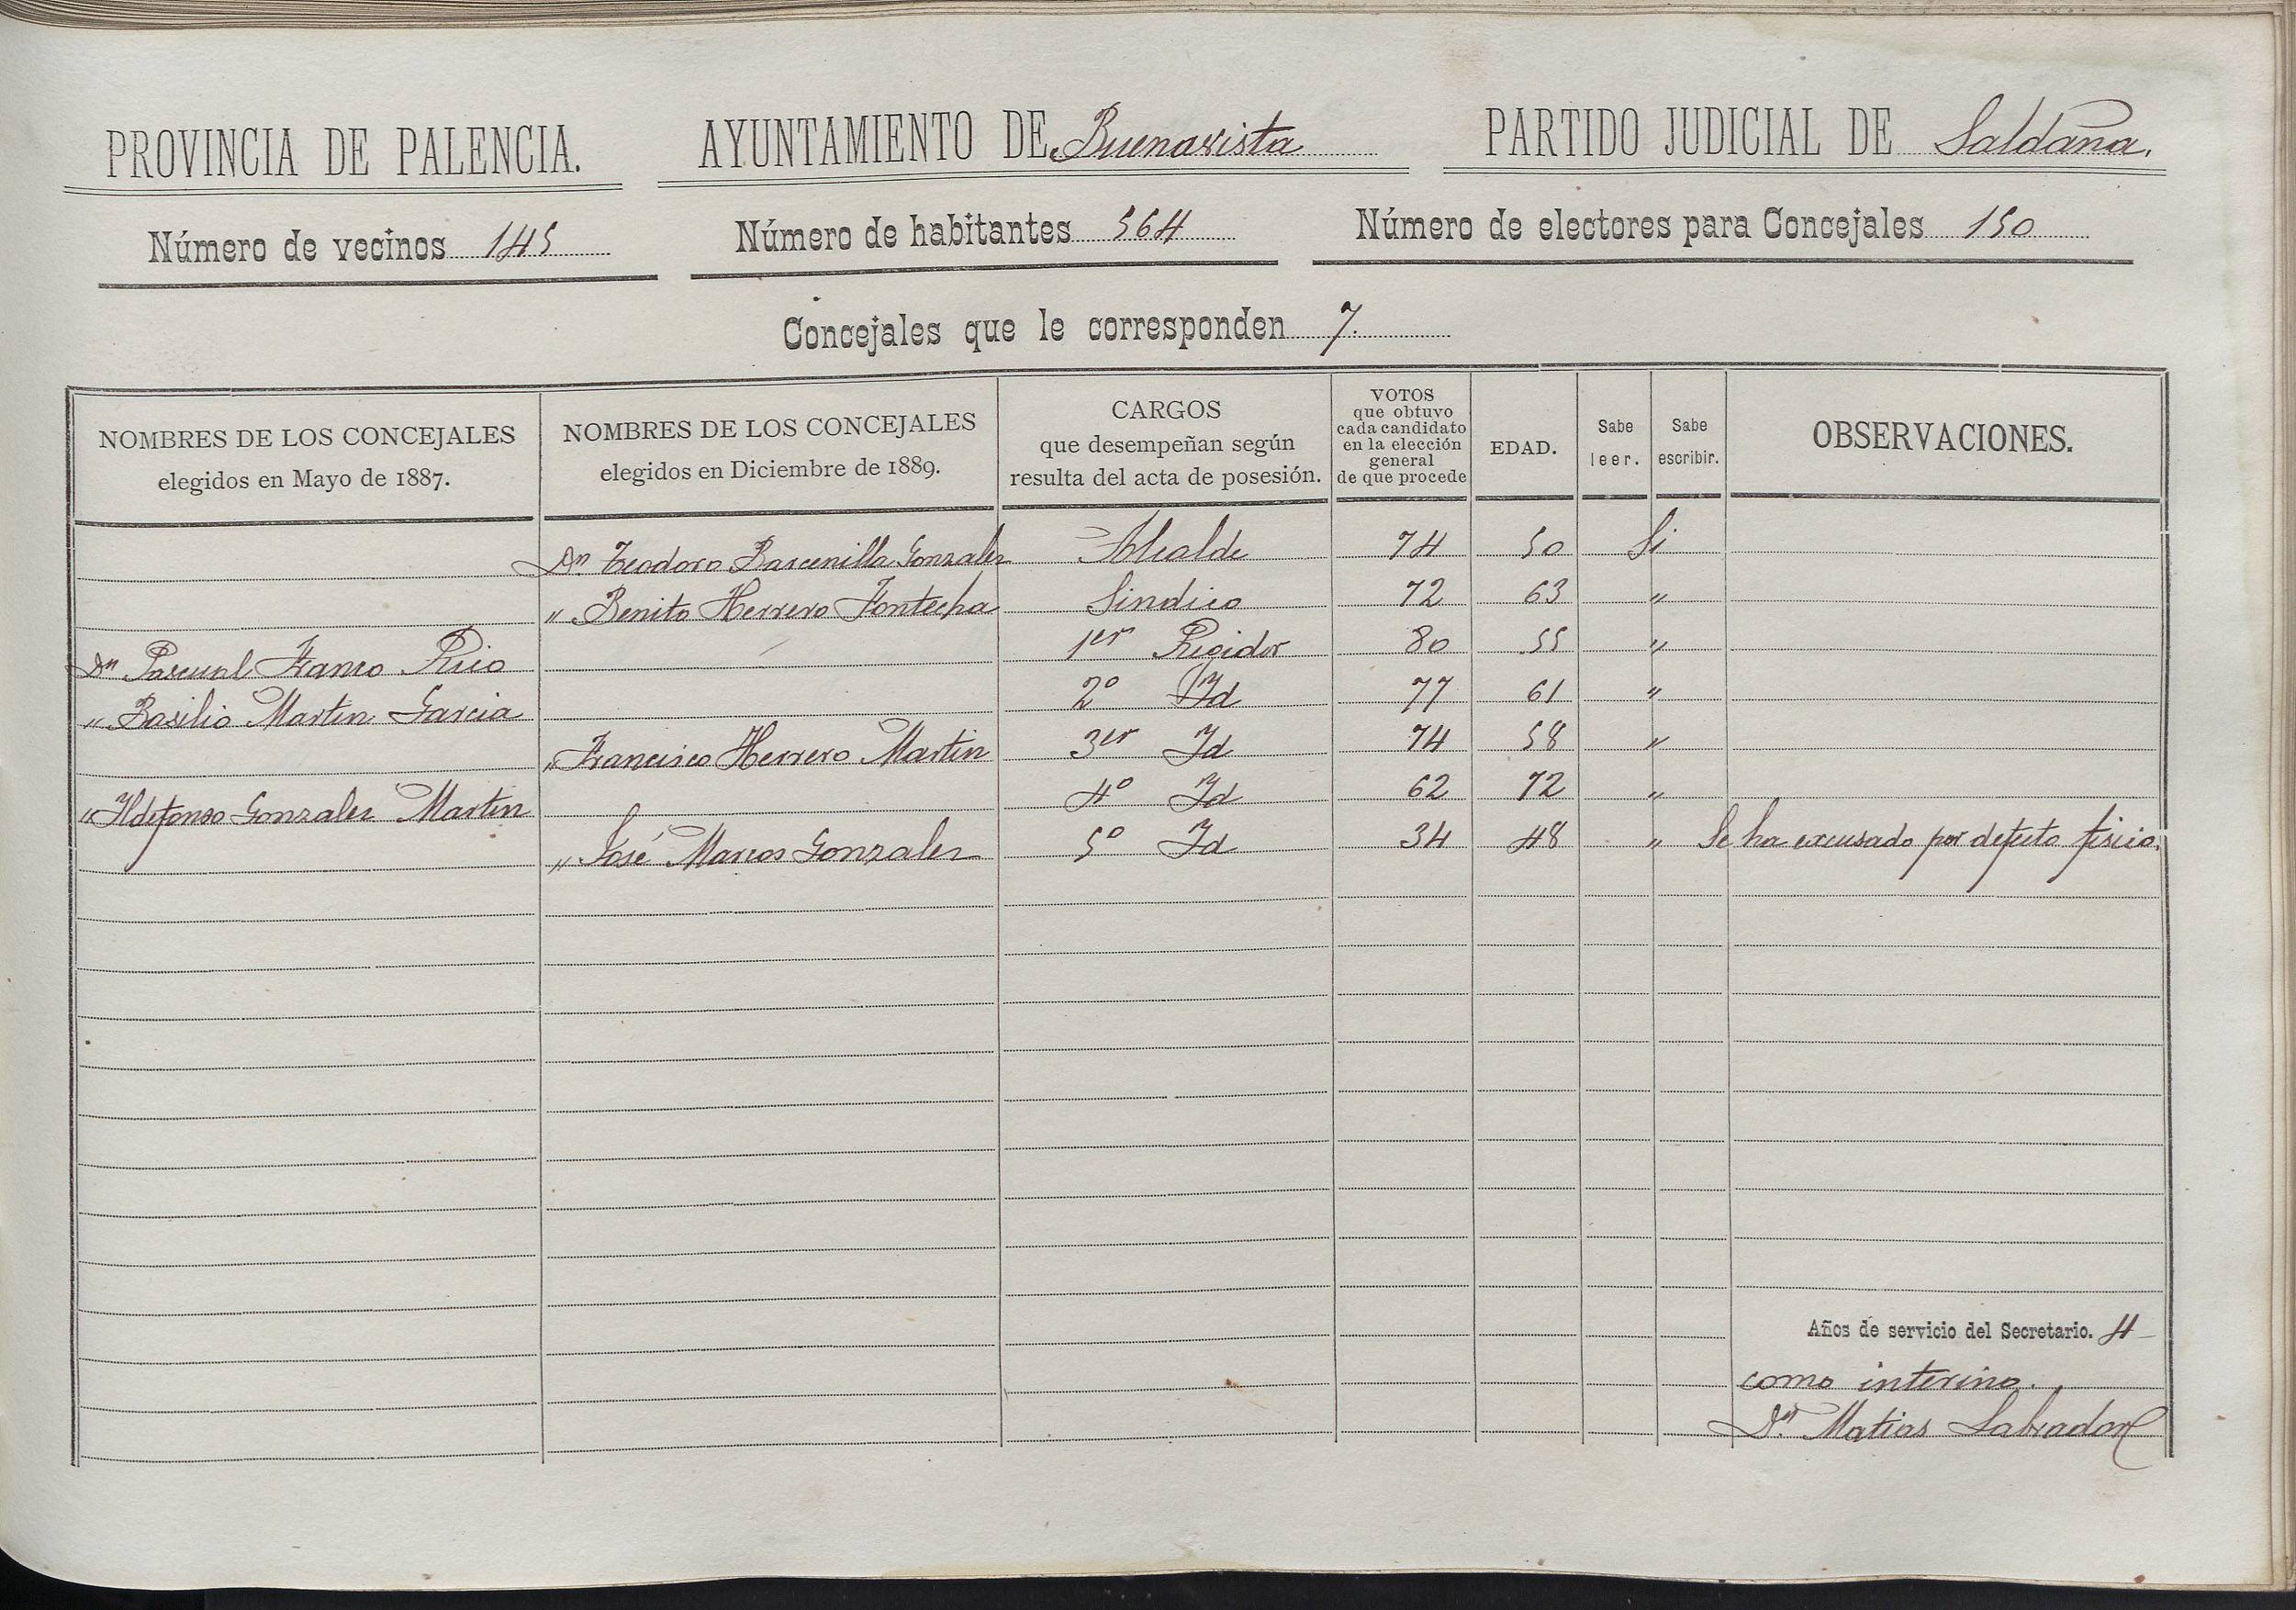 PROVINCIA DE PALENCIA. AYUNTAMIENTO DE Buenavista PARTIDO JUDICIAL DE Saldaña.
Número de vecinos 145 Número de habitantes 564 Número de electores para Concejales 150
Concejales que le corresponden 7.
NOMBRES DE LOS CONCEJALES elegidos en Mayo de 1887. NOMBRES DE LOS CONCEJALES elegidos en Diciembre de 1889. CARGOS que desempeñan según resulta del acta de posesión. VOTOS que obtuvo cada candidato en la elección general de que procede EDAD. Sabe leer. Sabe escribir. OBSERVACIONES.
Dn Teodoro Barcenilla Gonzalez Alcalde 74 50 Si
" Benito Herrero Fontecha Sindico 72 63 "
Dn Pascual Franco Rio 1er Regidor 80 55 "
" Basilio Martin Garcia 2º Id 77 61 "
" Francisco Herrero Martin 3er Id 74 58 "
" Ildefonso Gonzalez Martin 4º Id 62 72 "
" José Marcos Gonzalez 5º Id 34 48 " Se ha excusado por defecto fisico.
Años de servicio del Secretario. 4
como interino.
Dn Matias Labrador